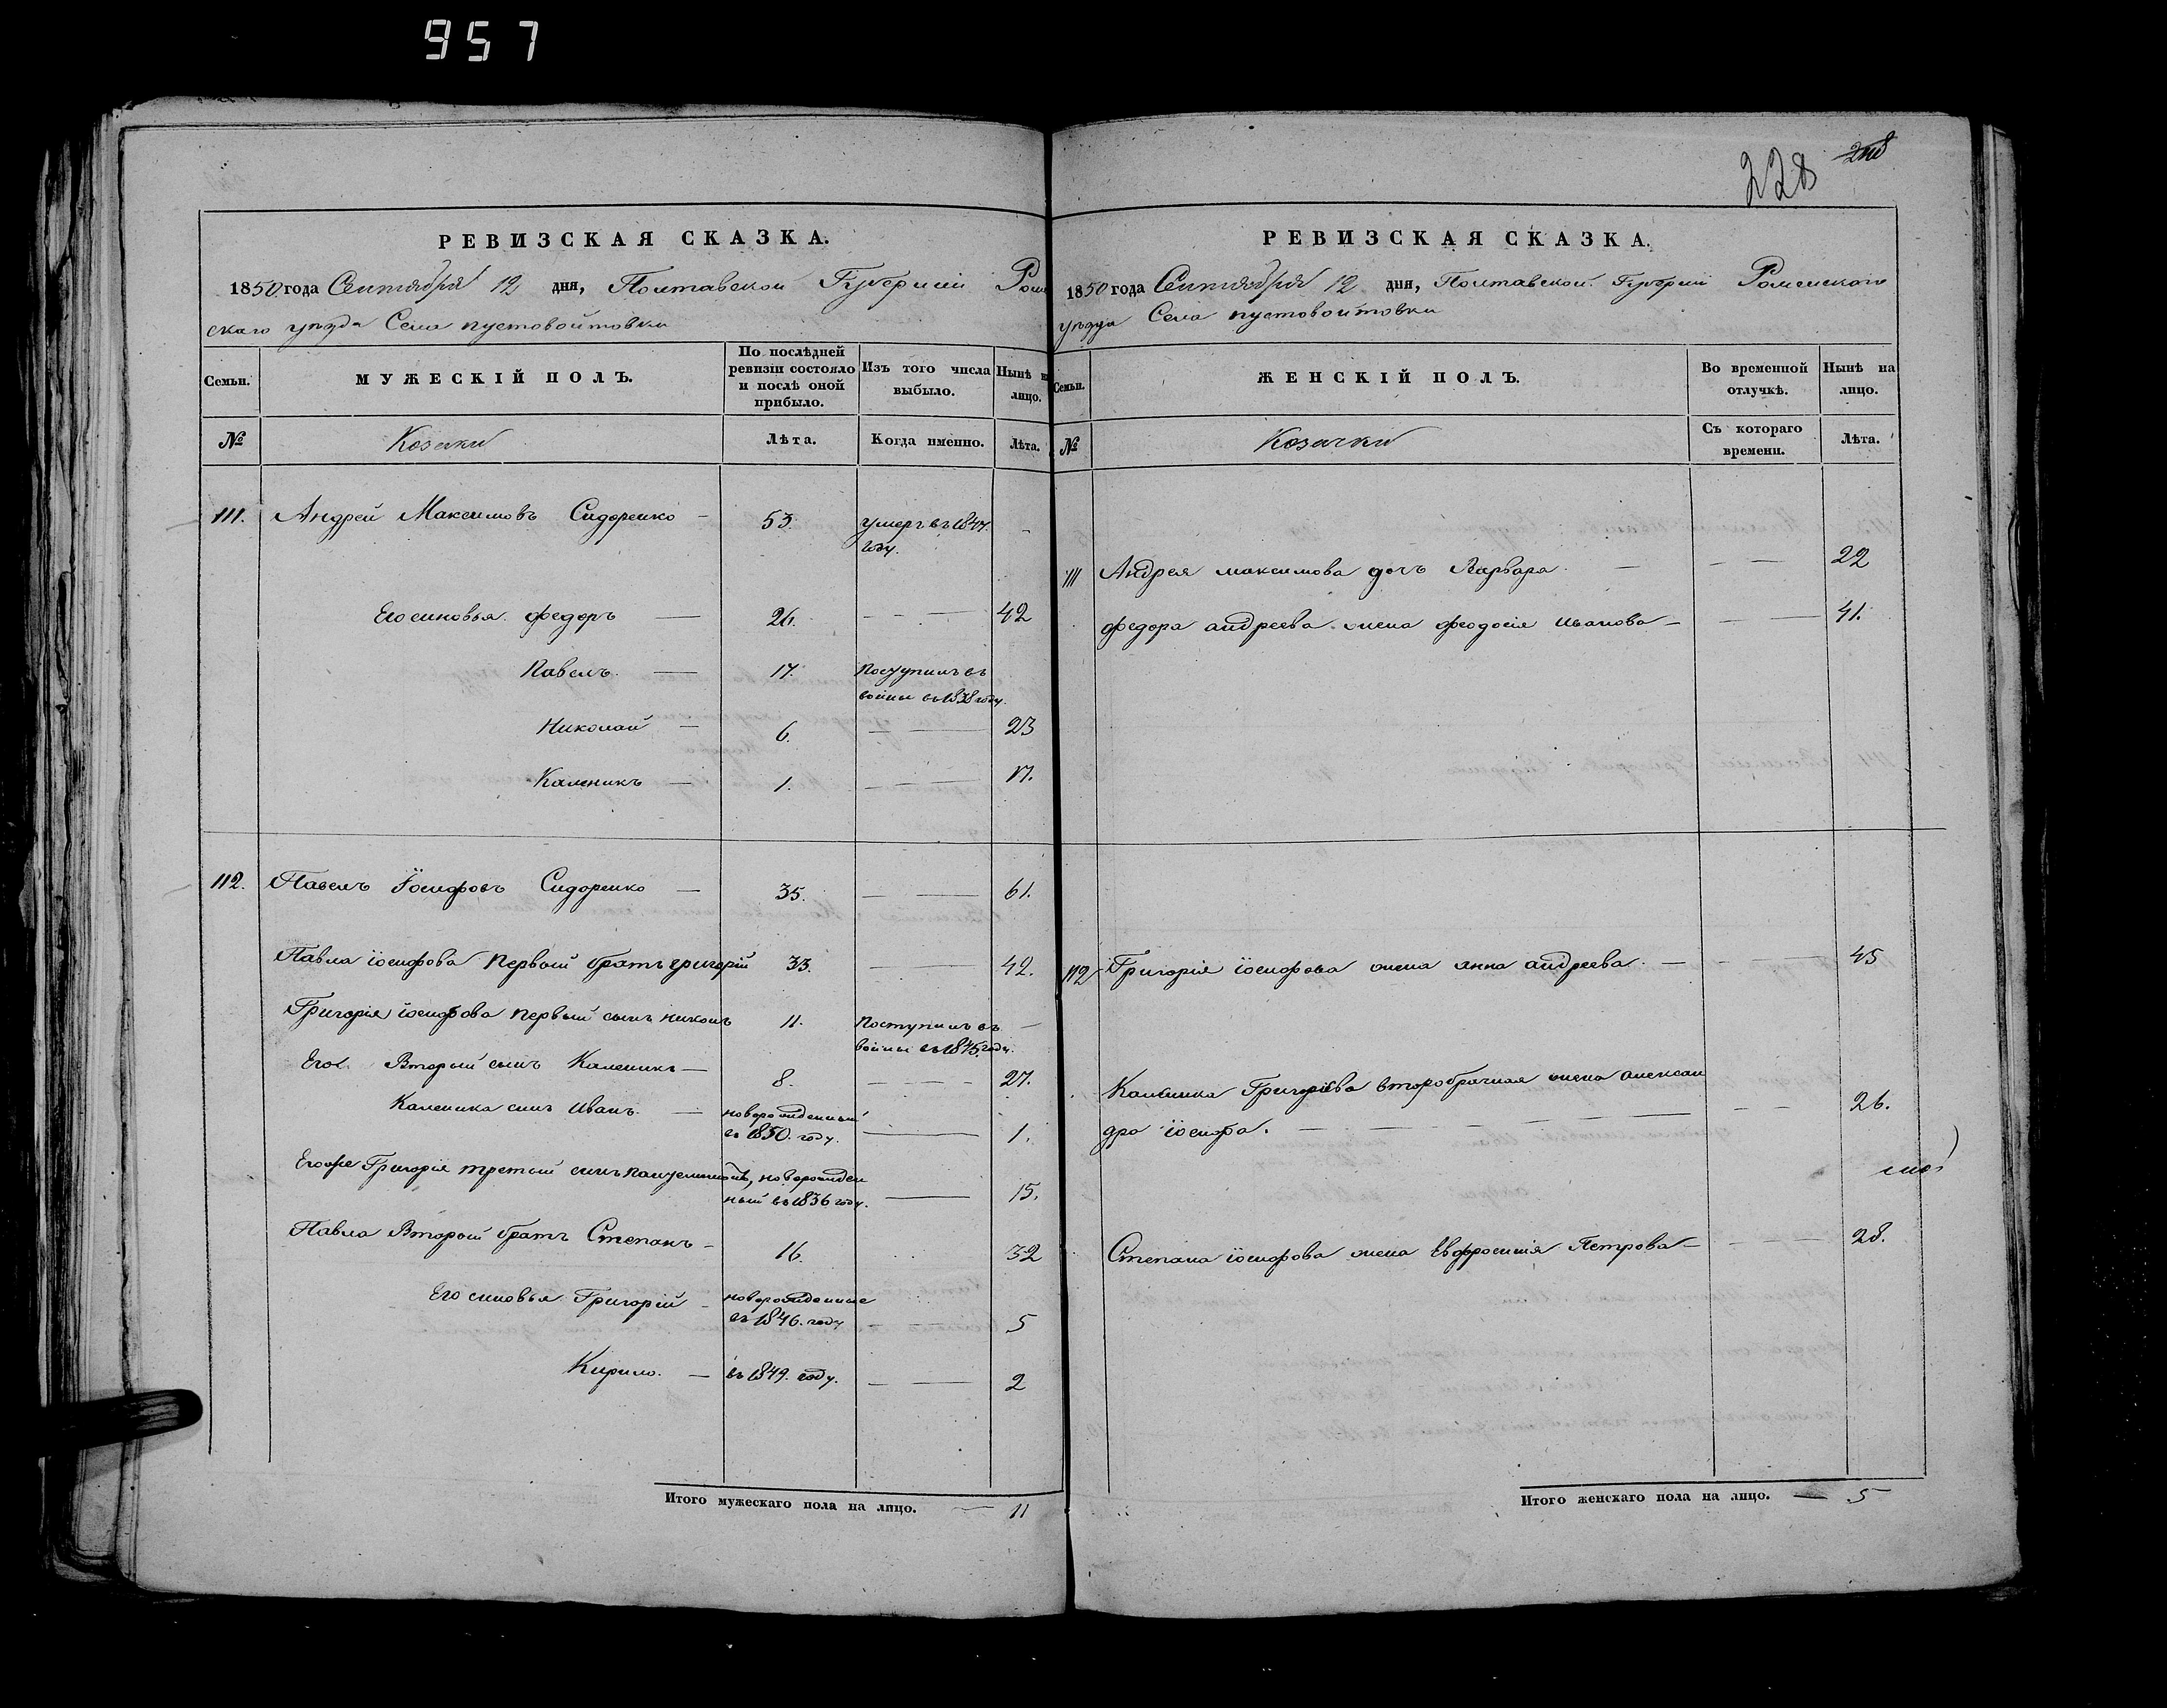 957
228
РЕВИЗСКАЯ СКАЗКА.
1850 года Сентября 12 дня, Полтавской Губерніи Ром
скаго уѣзда Села пустовойтовки
Семьи.
МУЖЕСКІЙ ПОЛЪ.
По послѣдней ревизіи состояло и послѣ оной прибыло.
Изъ того числа выбыло.
Нынѣ н лицо.
№
Козаки
Лѣта.
Когда именно.
Лѣта.
111. Андрей Максимовъ Сидоренко — 53. умеръ въ 1844. —
году.
Его синовья федоръ — 26. — — 42
Павелъ. — 17. Поступилъ въ
войны въ 1838 году.
Николай — 6. — — 23
Каленикъ — 1. — — 17.
112. Павелъ Іосифовъ Сидоренко — 35. — — 61.
Павла іосифова первый братъ григорій 33. — — 42.
Григорія іосифова первый сынъ никонъ 11. Поступилъ въ —
войны въ 1845. году.
Его Вторый сынъ Каленикъ — 8. — — — 27.
Каленика синъ Иванъ. — новорожденный
въ 1850. году. — 1.
Егоже Григорія третый синъ пантелимонъ, новорожден
ный въ 1836 году. — 15.
Павла Второй братъ Степанъ — 16. 32
Его синовья Григорій — новорожденные
въ 1846. году — — 5
Кирило. — въ 1849. году. — — 2
Итого мужескаго пола на лицо. — 11
РЕВИЗСКАЯ СКАЗКА.
1850 года Сентября 12 дня, Полтавской Губерніи Роменскаго
уѣзда Села пустовойтовки
Семьи.
ЖЕНСКІЙ ПОЛЪ.
Во временной отлучкѣ.
Нынѣ на лицо.
№
Козачки
Съ котораго времени.
Лѣта.
111 Андрея максимова дочъ Варвара. — — — 22
федора андреева жена феодосія иванова — — — 41.
112 Григорія іосифова жена анна андреева. — — — 45
Каленика Григоріева второбрачная жена александ
дра іосифа. — — — — — — 26.
Степана іосифова жена Евфросинія Петрова — — — 28.
Итого женскаго пола на лицо. — 5